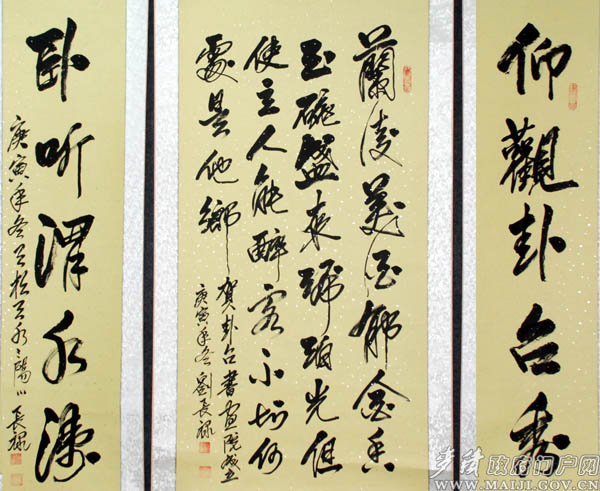 仰觀卦台秀
蘭陵美酒郁金香
玉碗盛來琥珀光但
使主人能醉客不知何
處是他鄉
賀卦台書画院成立
庚寅年冬 劉長祿
卧听渭水涛
庚寅年冬月於天水三陽川 長祿
政府门户网
WWW.MAIJI.GOV.CN